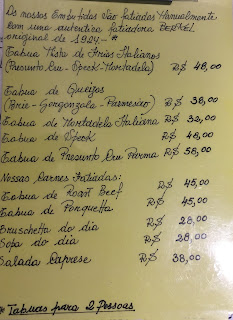 Os nossos Embutidos São fatiados Manualmente
com uma autentica fatiadora BERKEL
original de 1924 - *
Tabua Mista de Frios Italianos
(Presunto Cru - Speck - Mortadela) R$ 48,00
Tabua de Queijos
(Brie - Gorgonzola - Parmesão) R$ 38,00
Tabua de Mortadela Italiana R$ 32,00
Tabua de Speck R$ 48,00
Tabua de Presunto Cru Parma R$ 58,00
Nossas Carnes Fatiadas:
Tabua de Roast Beef R$ 45,00
Tabua de Porquetta R$ 45,00
Bruschetta do dia R$ 28,00
Sopa do dia R$ 28,00
Salada Caprese R$ 38,00
* Tabuas para 2 Pessoas